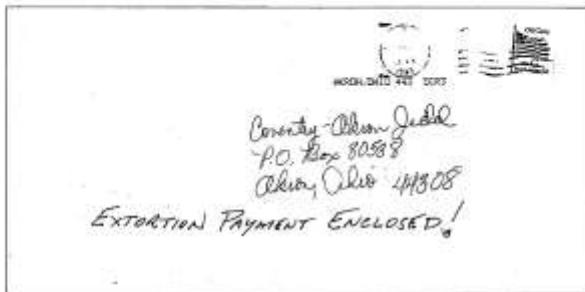 AKRON, OHIO 443
Coventry-Akron Jedd
P.O. Box 80538
Akron, Ohio 44308
EXTORTION PAYMENT ENCLOSED!